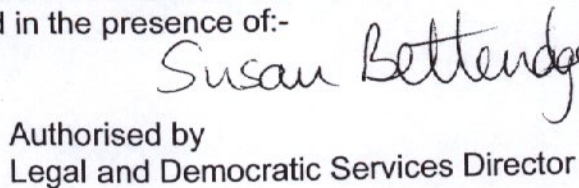 d in the presence of:-
Susan
Authorised by
Legal and Democratic Services Director